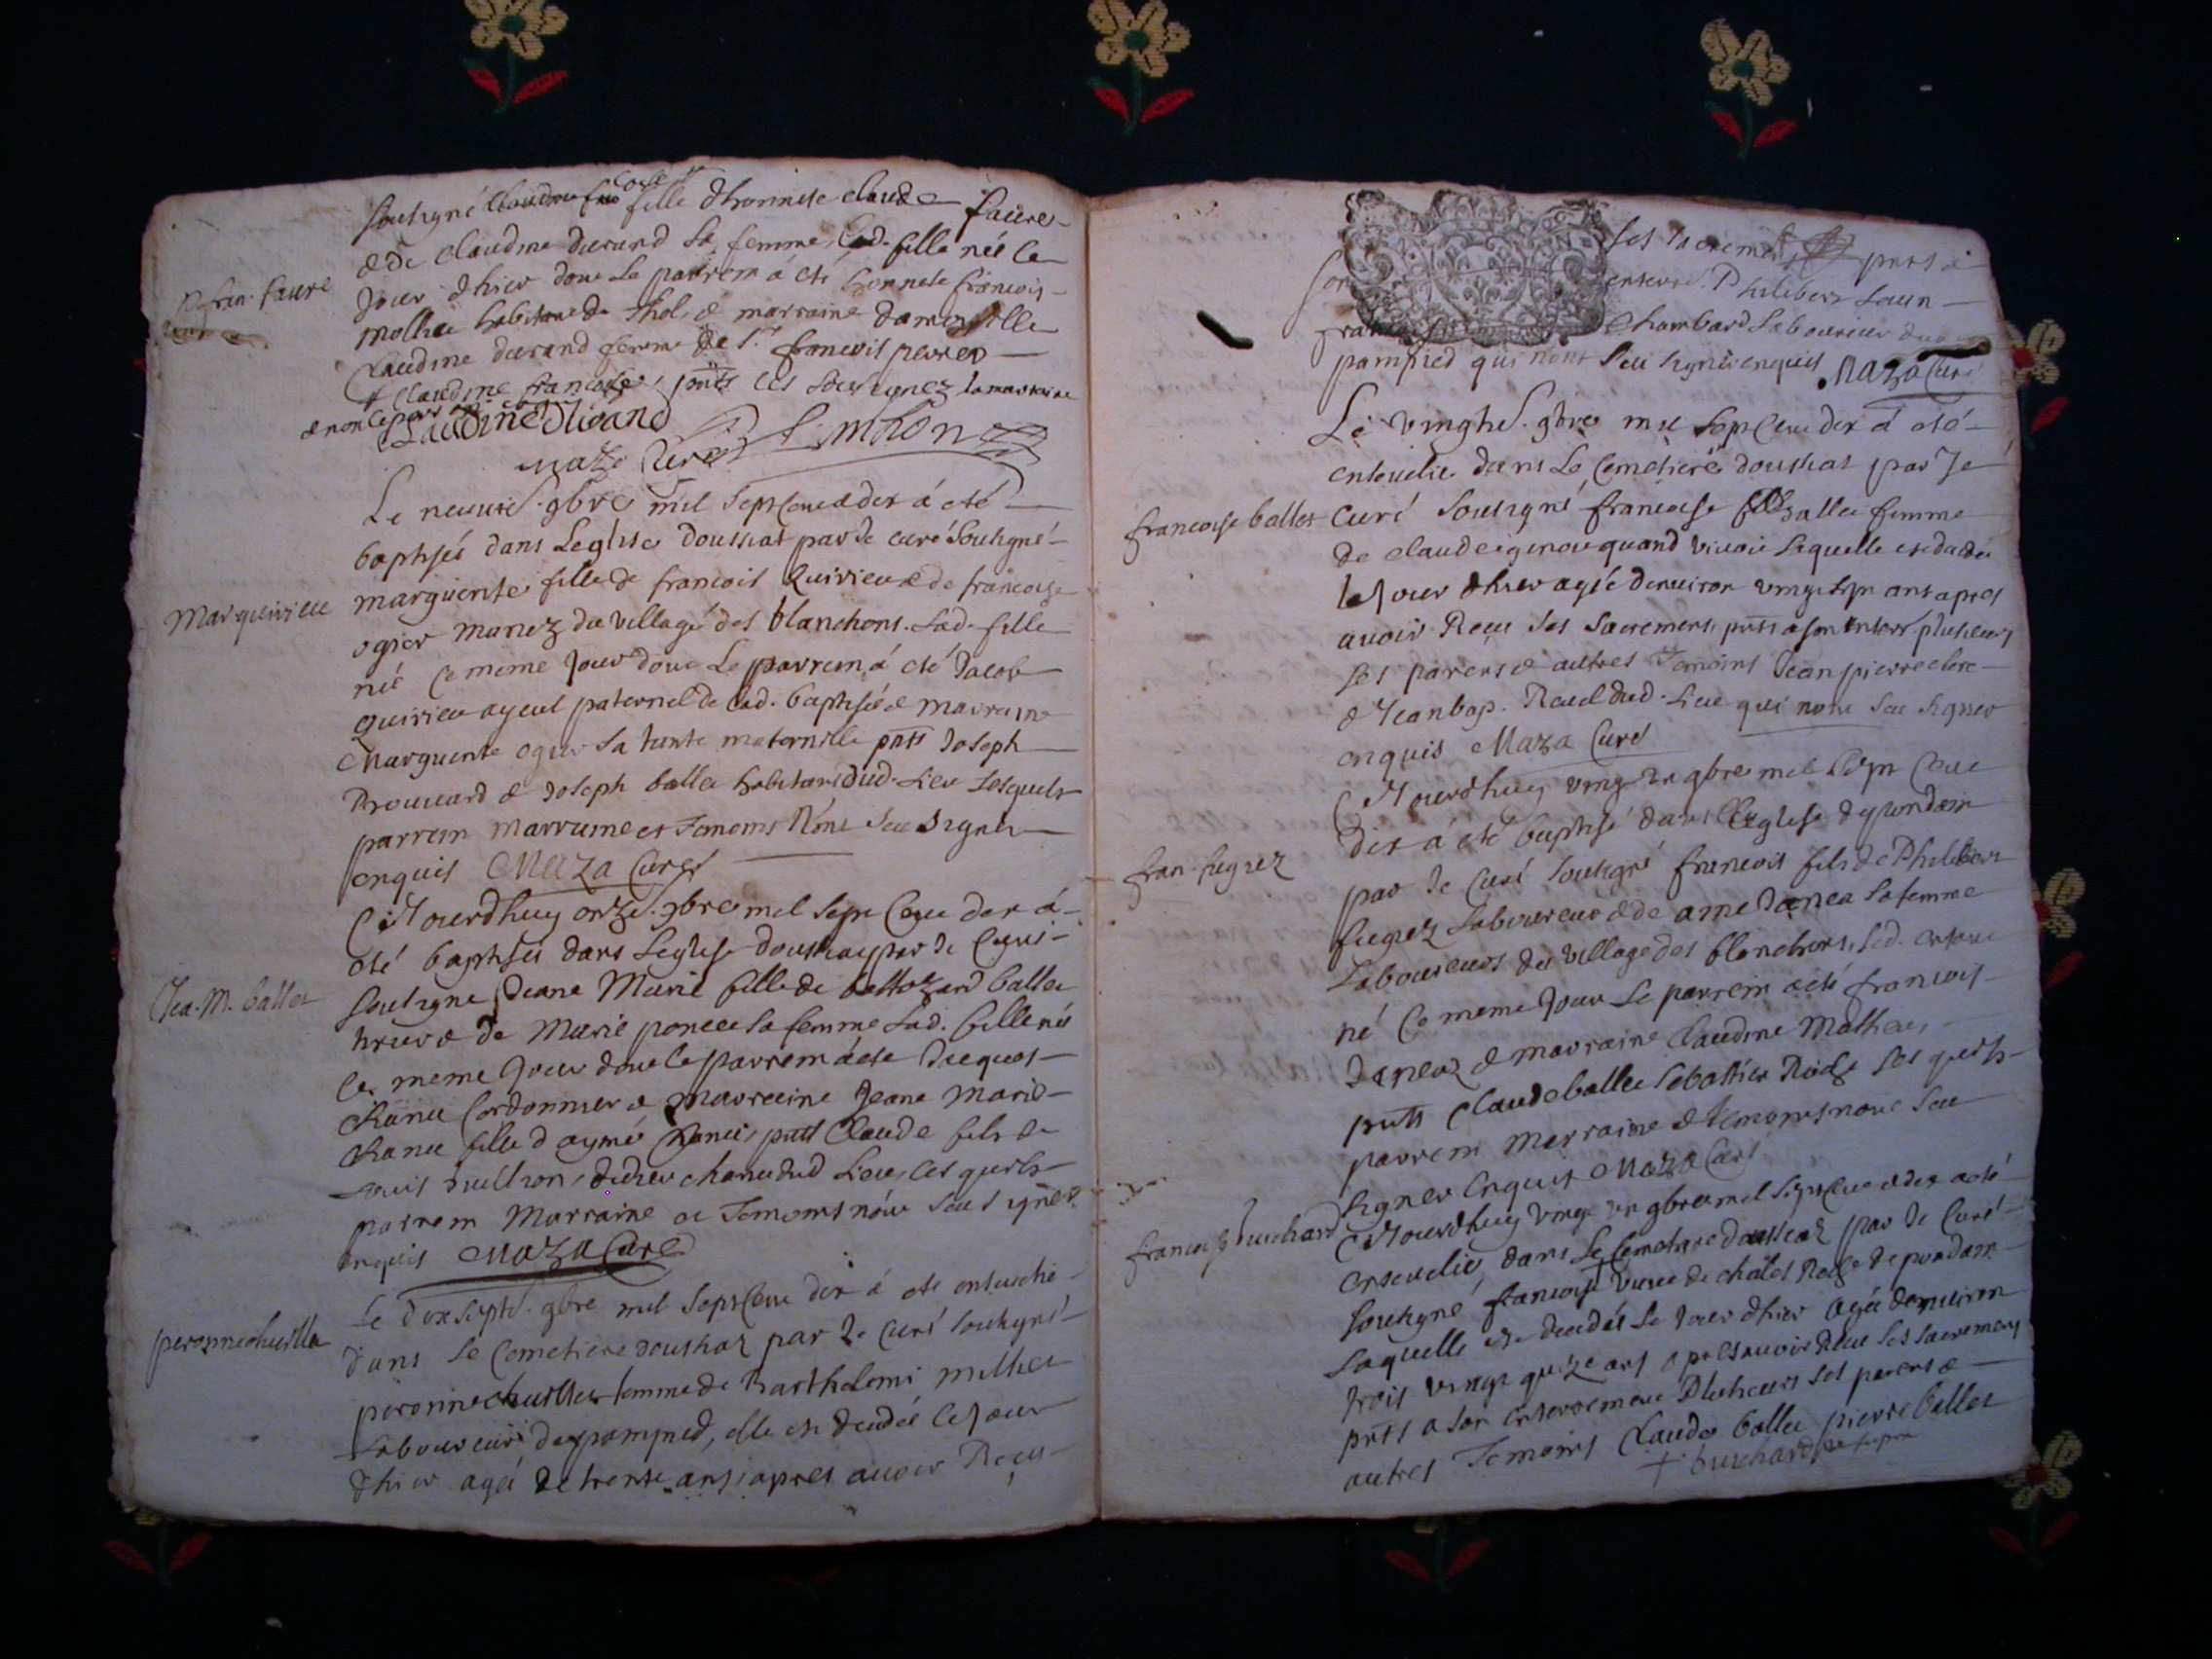 soubsigné Claudine fille d'honneste claude faure
& de claudine durand sa femme, lad. fille née le
fran. faure
Jour d'hier dont le parrein á eté honneste francois
mollie habitant de thol, & marraine damoiselle
Claudine durand femme de Sr. francois perret
Claudine francoise, pntts les soubsignez la marraine
& non le parrein
Claudine Durand
Maza Curé
Le neuvie. 9bre mil sept cent & dix á eté
baptisée dans Leglise doussiat par Je curé soubsigné
margueritte fille de francois Quirieu & de francoise
Mar quirieu
ogier mariez du village des blanchons. Lad. fille
née Ce meme Jour dont Le parrem á eté Jacob
quirieu ayeul paternel de lad. baptisée & marraine
Marguerite ogier sa tante maternelle pntts Joseph
Brouuard & Joseph ballet habitans dud. Lieu Lesquels
parrem marraine et temoms Nont sceu signer
enquis Maza Curé
CeJourdhuy onze. 9bre mil sept Cent dix á
eté baptisée dans Leglise doussiat par Je Curé
Jea. M. ballet
soubsigné Jeane Marie fille de baltazard ballet
& de Marie poncet sa femme Lad. fille née
Ce meme Jour dont le parrem á eté Jacques
Chanel Cordonnier & marraine Jeane Marie
Chanel fille d'aymé Chanel, pntts Claude fils de
Louis , didier chanel dud Lieu, Lesquels
parrem Marraine et temoms nónt sceu signer
enquis Maza Curé
Le dix septe. 9bre mil sept Cent dix á eté ensevelie
peronne chevillet
dans le Cemetiere doussiat par Je Curé soubsigné
peronne femme de Barthelemi millet
Laboureur de pampied, elle est decedée le Jour
d'hier agée de trente ans, apres avoir Reçu
ses sacrements pnts à
son enterre. Philibert Laun
francois Chambard Laboureur dud
pampied qui nont sceu signer enquis Maza Curé
Le vingtie. 9bre mil sept Cent dix á eté
ensevelie dans Le Cemetiere doussiat par Je
francoise ballet
Curé soubsigné francoise ballet femme
de claude quand vivoit Laquelle est decedée
le Jour d'hier agée denviron vingt sept ans apres
avoir Reçu ses sacrements pntts a son enterr. plusieurs
ses parens & autres Temoins Jean pierre clerc
& Jean bap. Ravel dud. Lieu qui nont sceu signer
enquis Maza Curé
CeJourdhuy vingt un 9bre mil sept Cent
dix á eté baptisé dans Leglise de pondain
fran. fugiez
par Je Curé soubsigné francois fils de Philibert
fugiez Laboureur & de ame Janea sa femme
Laboureurs du village des blanchons, Led. enfant
né Ce meme Jour Le parrein a eté francois
Janeaz & marraine Claudine Mathieu
pntts Claude ballet Sebastien Rodze Les quels
parrem marraine & temoms nont sceu
signer enquis Maza Curé
CeJourdhuy vingt un 9bre mil sept Cent & dix a eté
francoise buchard
ensevelie dans Le Cemetiere doussiat par Je Curé
soubsigné francoise † veuve de Rodze de pondain
Laquelle est decedée Le Jour dhier agée denviron
trois vingt quinze ans apres avoir Reçu Les sacrements
pntts a son enterrement Plusieurs ses parens &
autres Temoins Claude ballet pierre ballet
† buchard